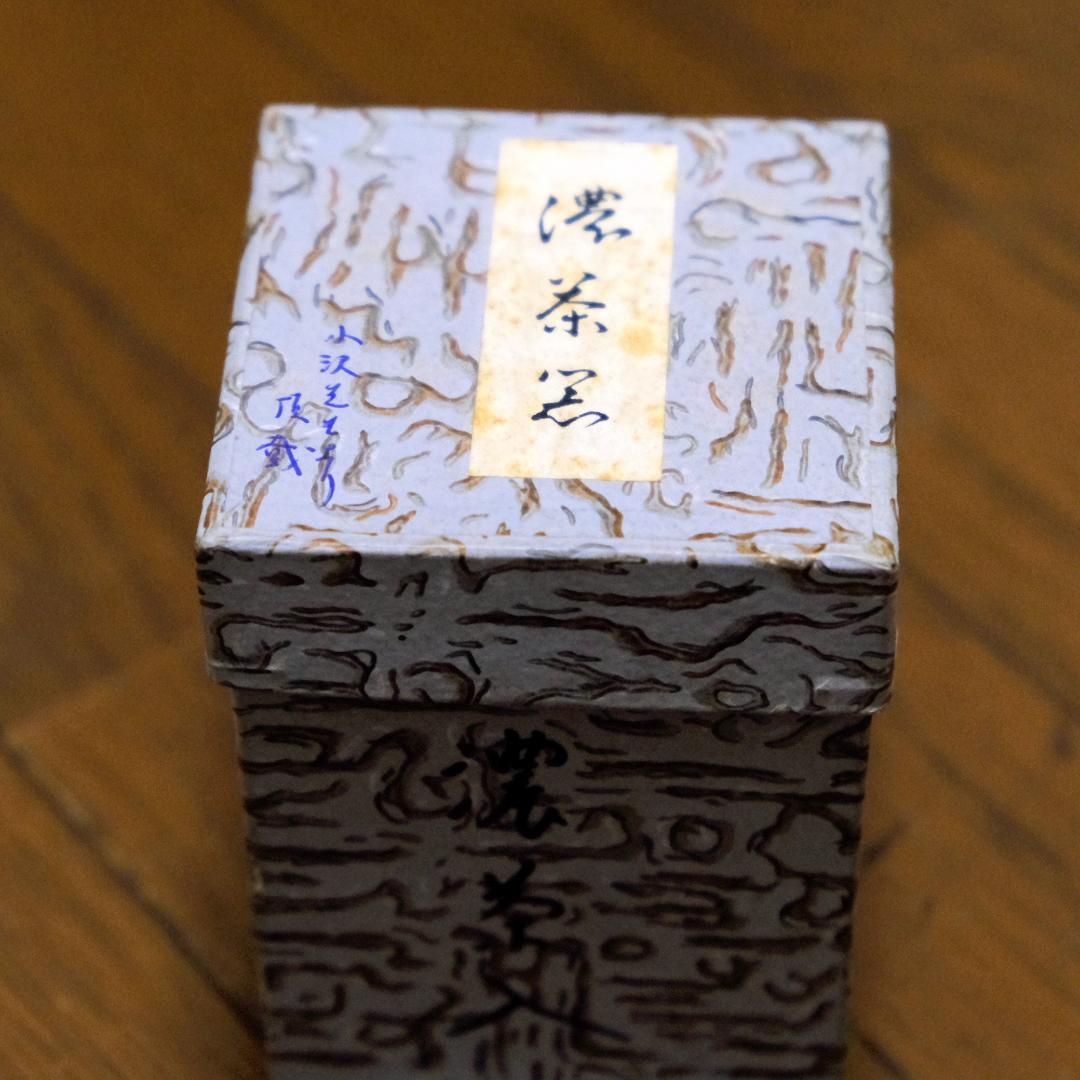 濃茶器
小沢先生より
頂戴
濃茶入